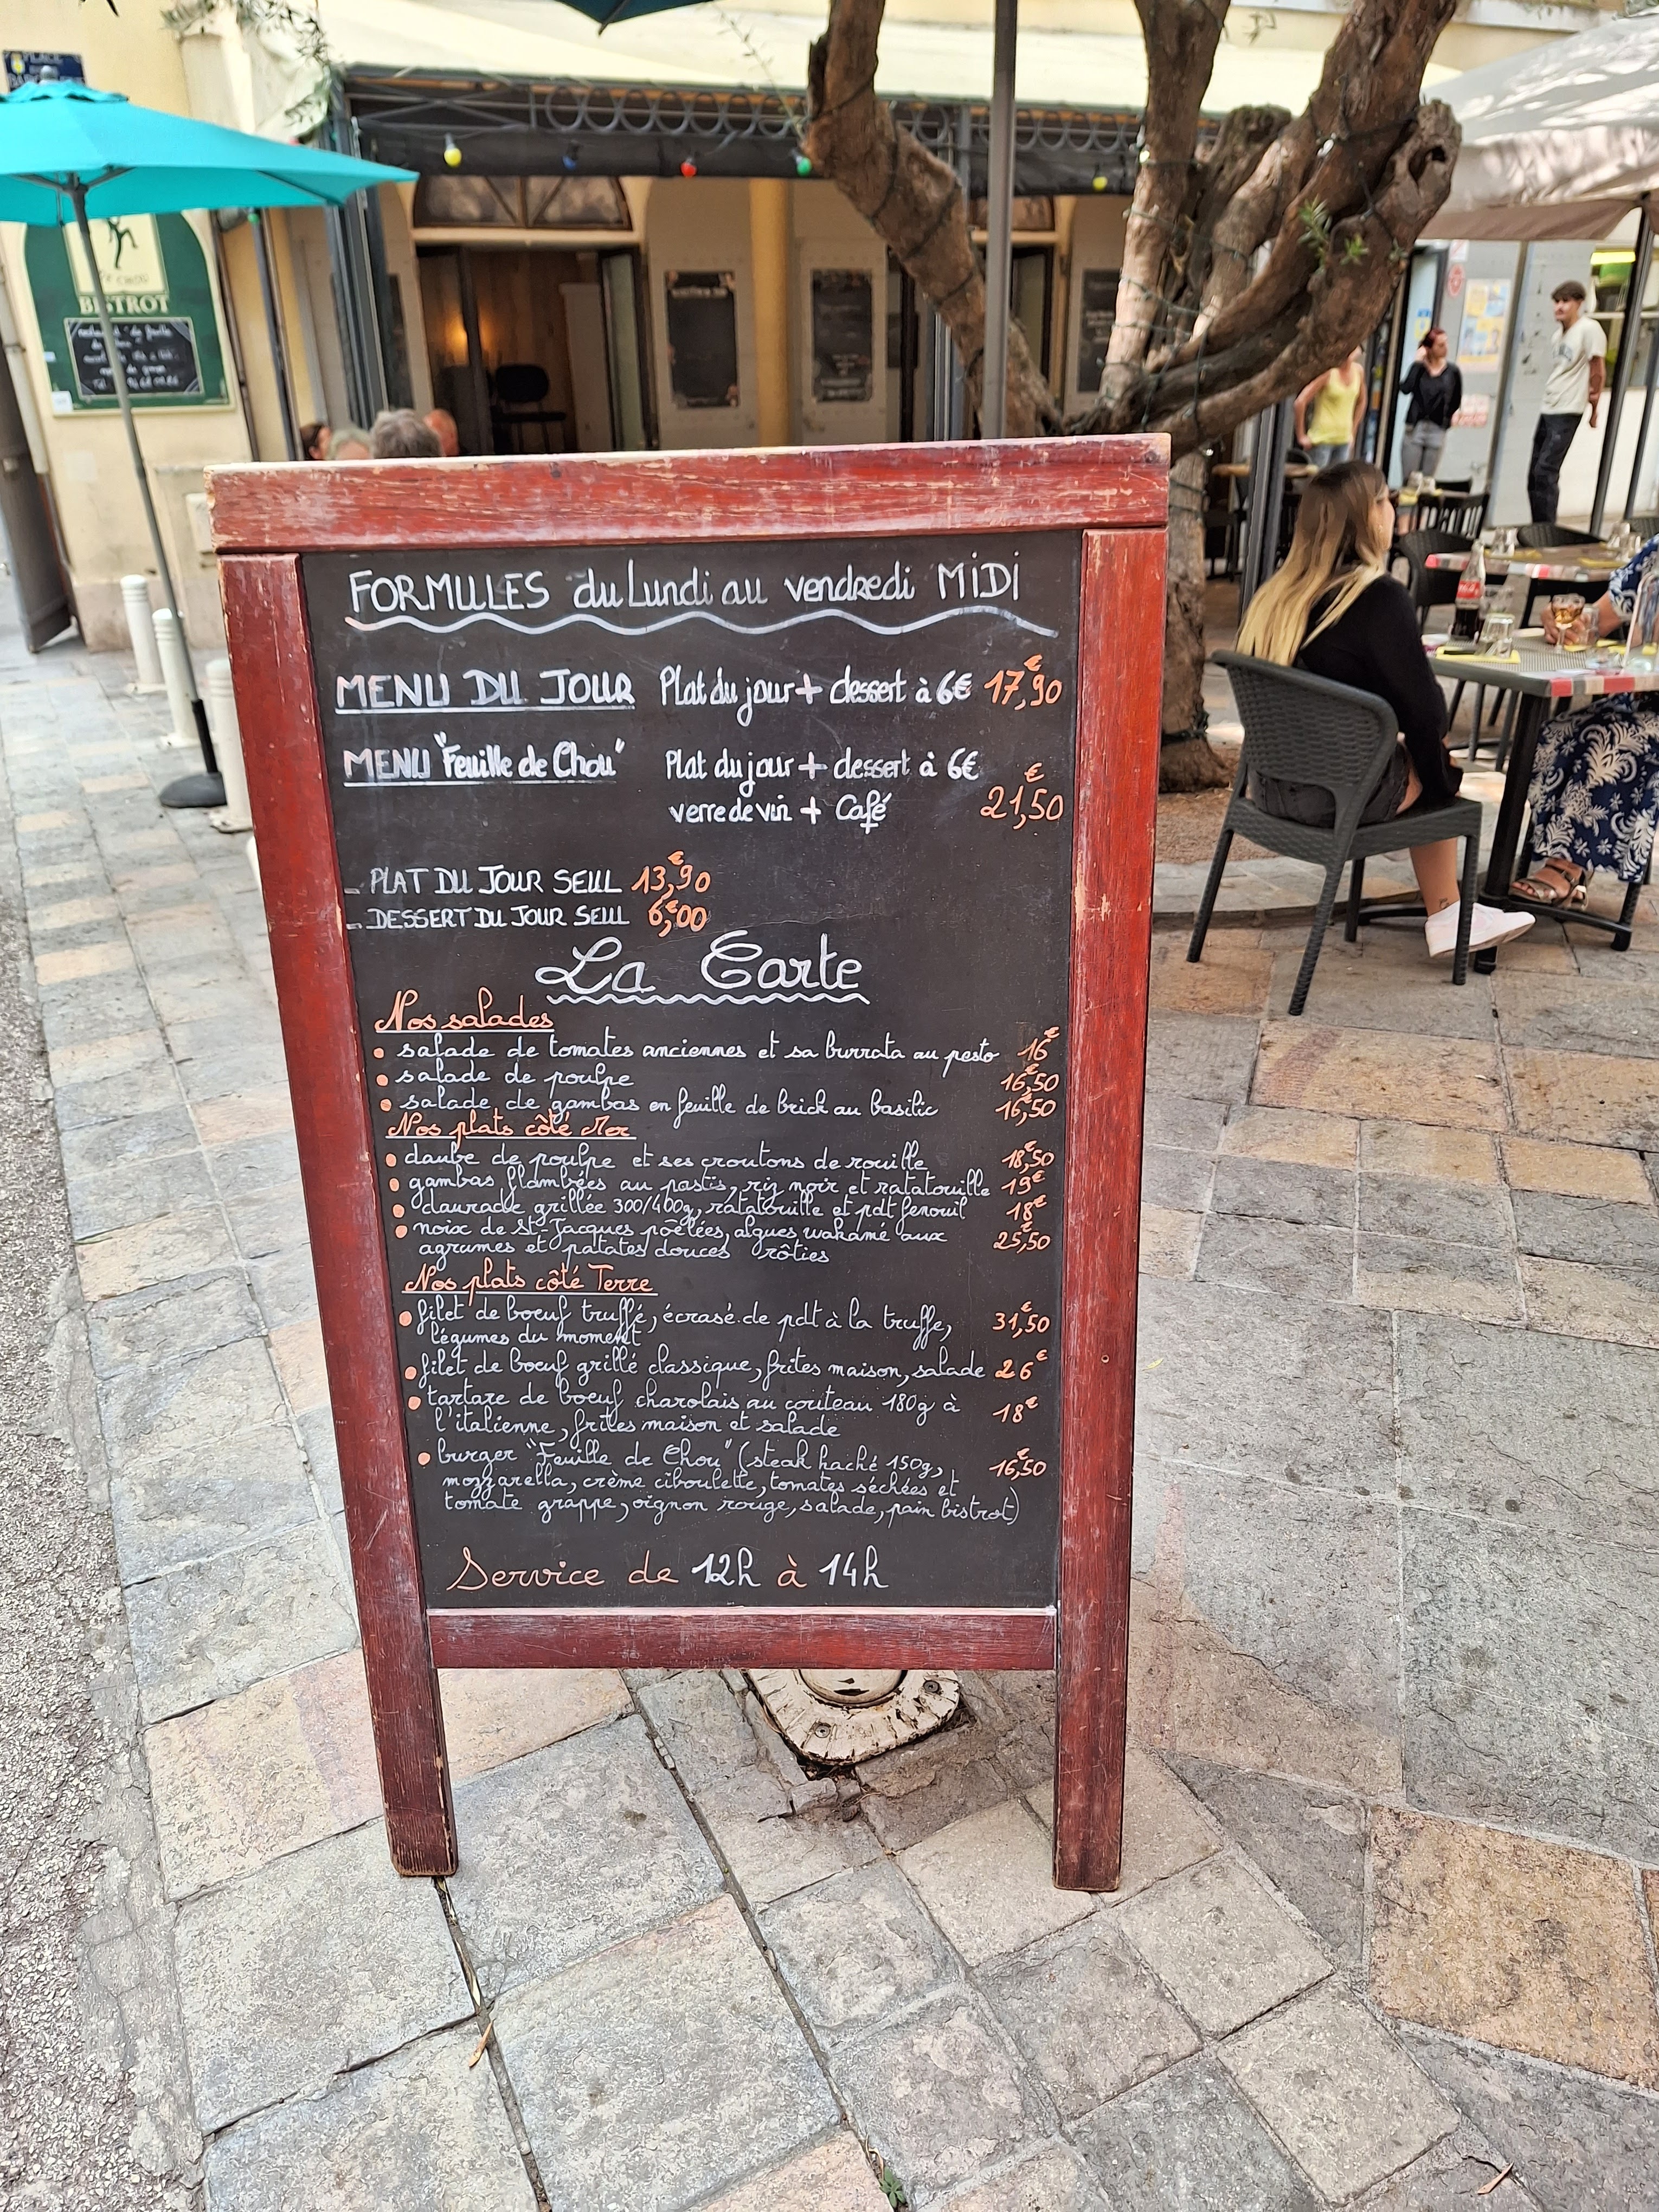 PLACE
BISTROT
FORMULES du Lundi au vendredi MiDi
MENU DU JOUR Plat du jour + dessert à 6€ 17,90€
MENU "Feuille de Chou" Plat du jour + dessert à 6€
verre de vin + Café 21,50€
- PLAT DU JOUR SEUL 13,90€
- DESSERT DU JOUR SEUL 6,00€
La Carte
Nos salades
• salade de tomates anciennes et sa burrata au pesto 16€
• salade de poulpe 16,50€
• salade de gambas en feuille de brick au basilic 16,50€
Nos plats côté Mer
• daube de poulpe et ses croutons de rouille 18,50€
• gambas flambées au pastis, riz noir et ratatouille 19€
• daurade grillée 300/400g, ratatouille et pdt fenouil 18€
• noix de St-Jacques pôelées, algues wakamé aux 25,50€
agrumes et patates douces rôties
Nos plats côté Terre
• filet de boeuf truffé, écrasé de pdt à la truffe, 31,50€
légumes du moment
• filet de boeuf grillé classique, frites maison, salade 26€
• tartare de boeuf charolais au couteau 180g à 18€
l'italienne, frites maison et salade
• burger "Feuille de Chou" (steak haché 150g, 16,50€
mozzarella, crème ciboulette, tomates séchées et
tomate grappe, oignon rouge, salade, pain bistrot)
Service de 12h à 14h